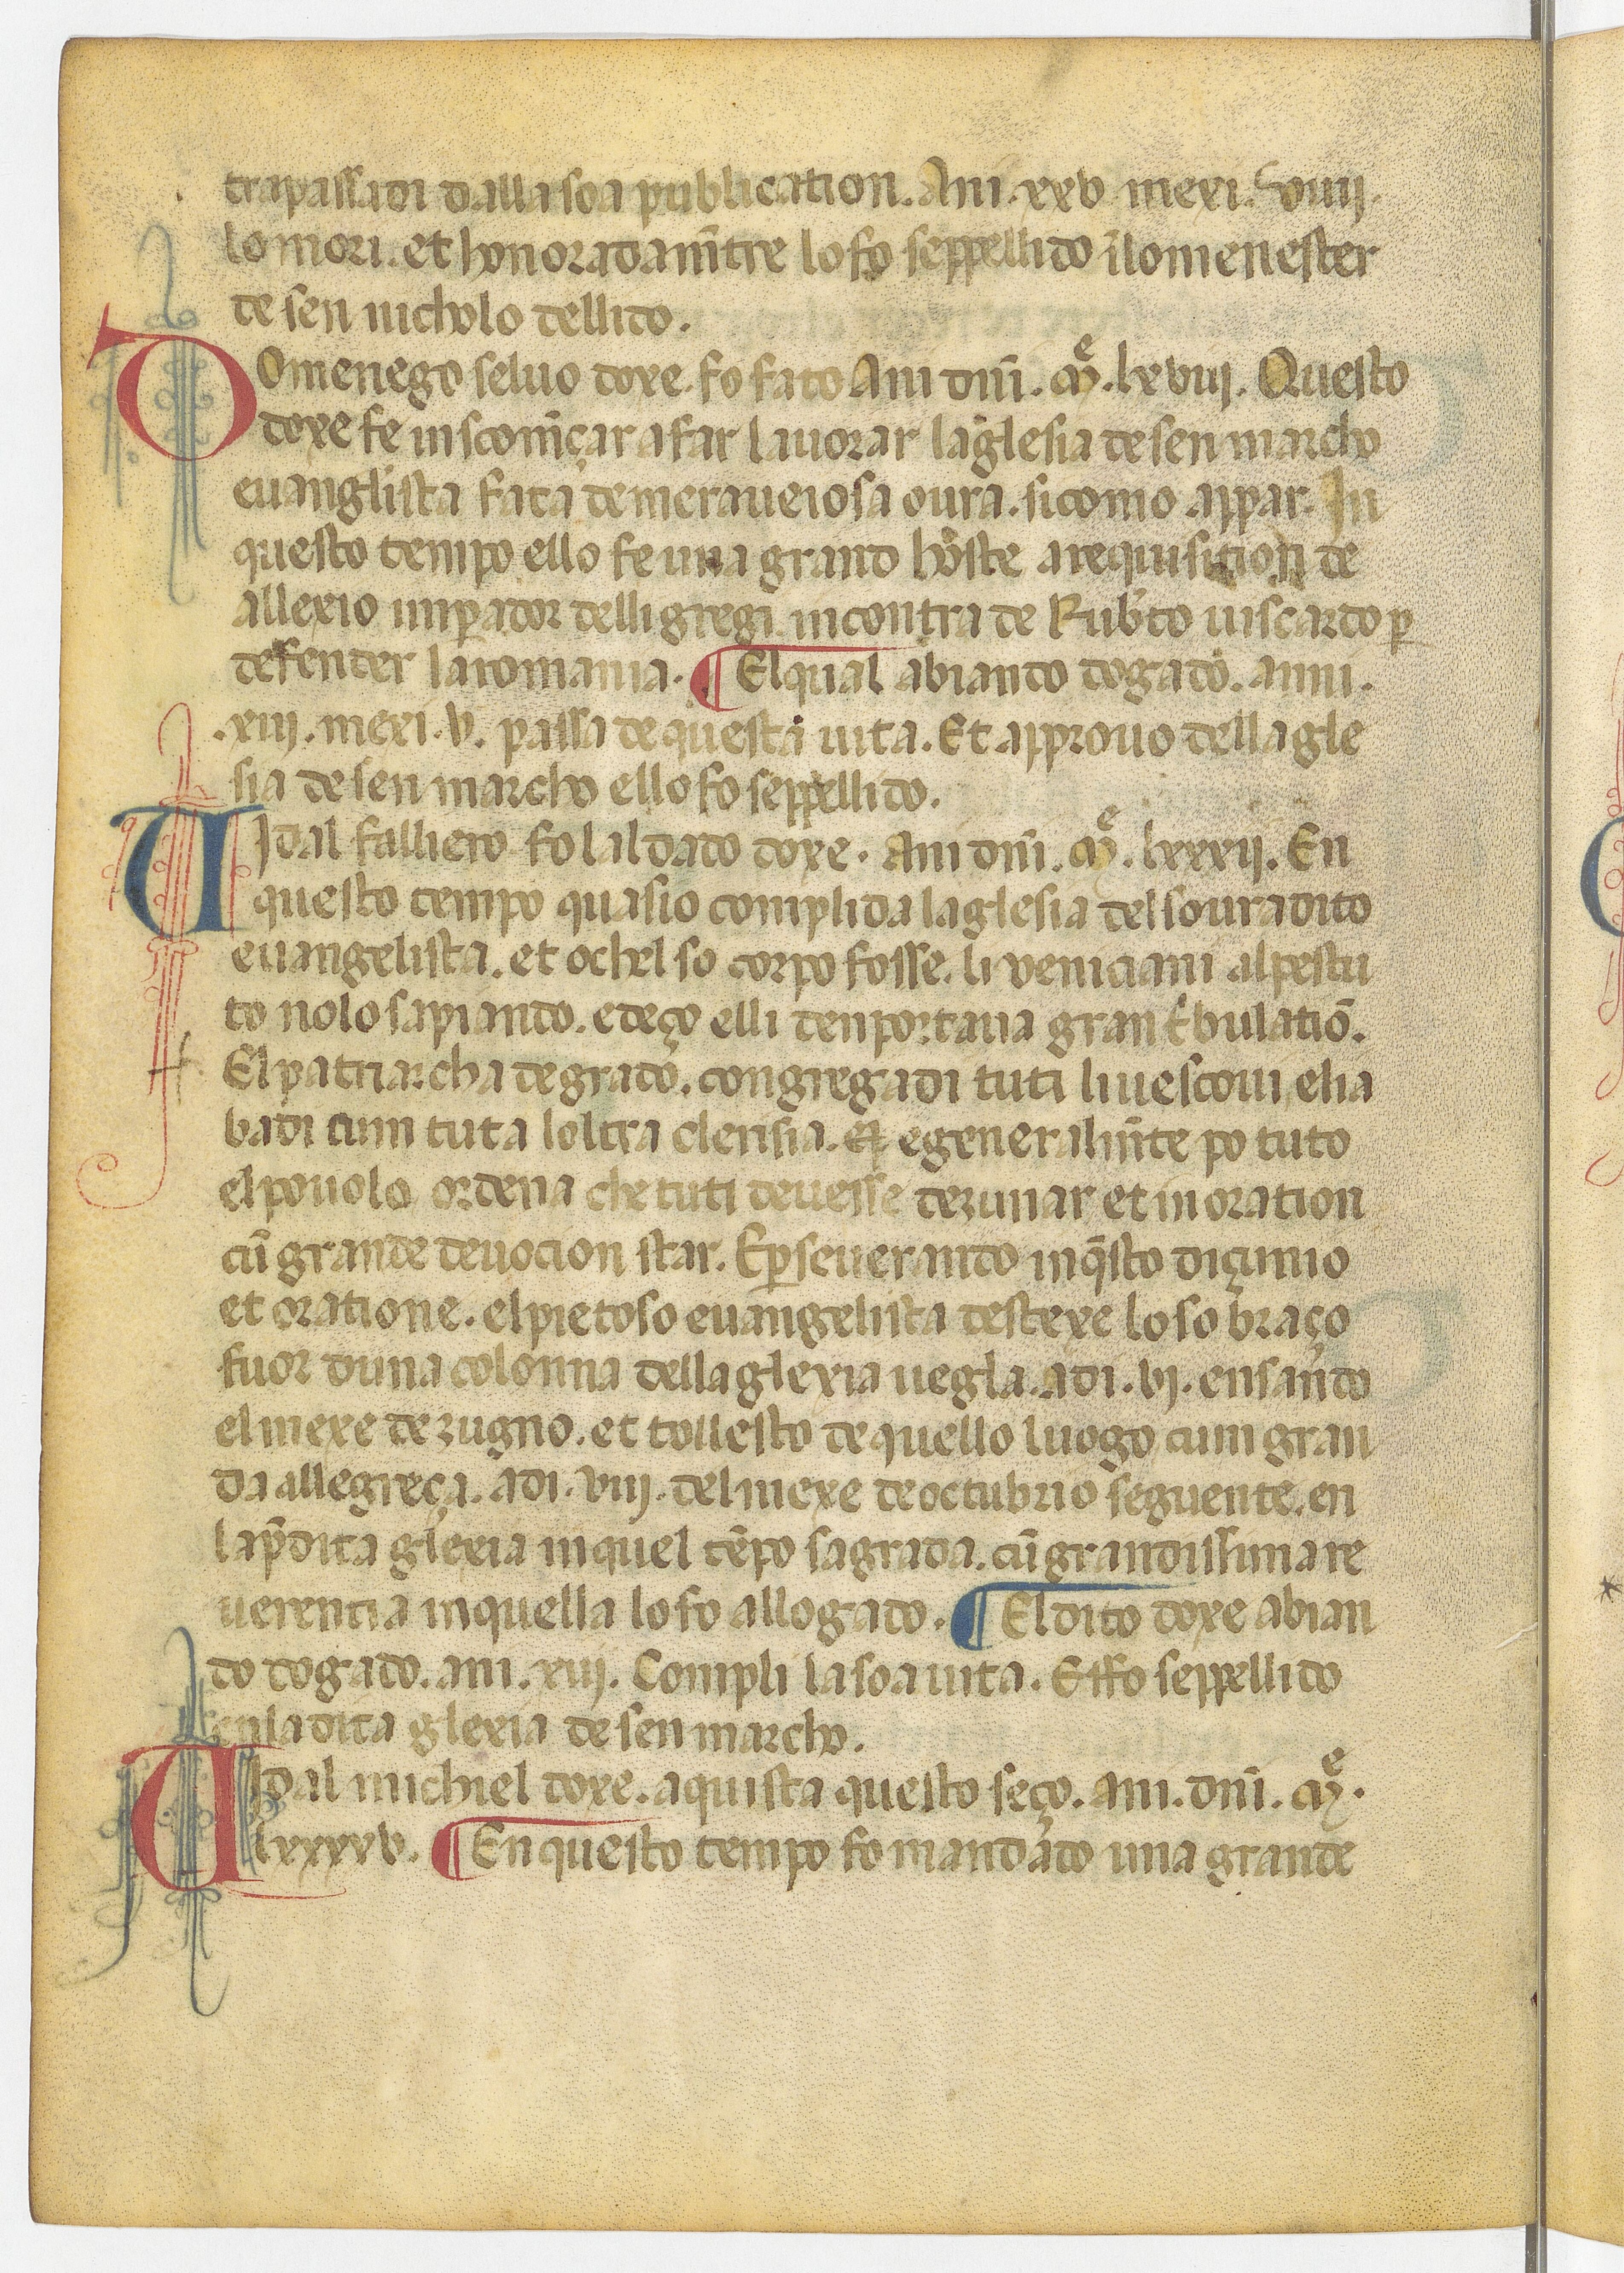 trapassadi dalla soa publication. Ani. xxv mexi. viiij.
lo mori. et honoradam̃tre lo fo seppellido ĩlo menester
de sen nicholo dellido.
Domenego seluo doxe. fo fato Ani dñi. Mͤ. lxviij. Questo
doxe fe inscom̃çar a far lauorar la glesia de sen marcho
euanglista fata de meraueiosa oura. si como appar. In
questo tempo ello fe una grand hoste a requisition de
allexio imꝑador delli gregi incontra de Rub̃to uiscardo ꝑ
defender la romania. ¶ El qual abiando dogado. anni.
.xiij. mexi. v. passa de questa uita. Et approuo della gle
sia de sen marcho ello fo seppellido.
Uidal falliero fo laldado doxe. Ani dñi. Mͤ. lxxxij. En
questo tempo quasio complida la glesia del souradito
euangelista. et o chel so corpo fosse. li veniciani al pestu
to nolo sapiando. e deço elli denportaua gran t̃bulatiõ.
El patriarcha de grado. congregadi tuti li uescoui e li a
badi cum tuta loltra clerisia. Et e generalm̃te po tuto
el pouolo ordena che tuti deuesse dezunar et in oration
cũ grande deuocion star. E ꝑseuerando in q̃sto diçunio
et oratione. el pietoso euangelista destexe lo so braço
fuor duna colonna della glexia uegla. adi. vj. ensando
el mexe de zugno. et tollesto de quello luogo cum gran
da allegreça. adi. viij. del mexe de octubrio seguente. en
la p̃dita glexia in quel tẽpo sagrada. cũ grandissima re
uerentia in quella lo fo allogado. ¶ El dito doxe abian
do dogado. ani. xiij. Compli la soa uita. Effo seppellido
en la dita glexia de sen marcho.
Uidal michiel doxe. aquista questo seço. ani. dñi. Mͤ.
lxxxxv. ¶ En questo tempo fo mandado una grande